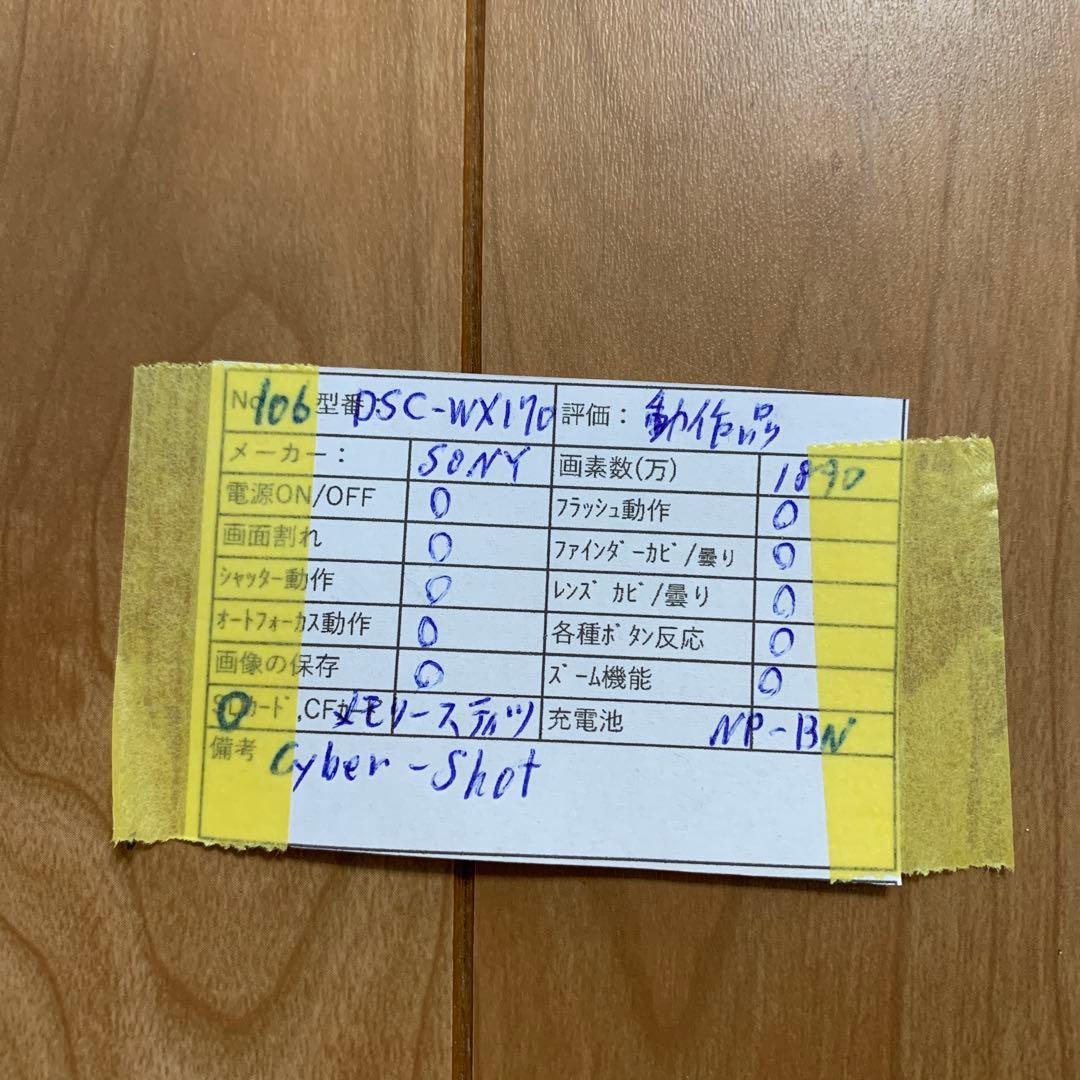 No. 106 型番: DSC-WX170 評価: 動作品
メーカー: SONY 画素数(万) 1890
電源ON/OFF O フラッシュ動作 O
画面割れ O ファインダーカビ/曇り O
シャッター動作 O レンズカビ/曇り O
オートフォーカス動作 O 各種ボタン反応 O
画像の保存 O ズーム機能 O
O カード,CFカード メモリースティック 充電池 NP-BN
備考 Cyber-Shot